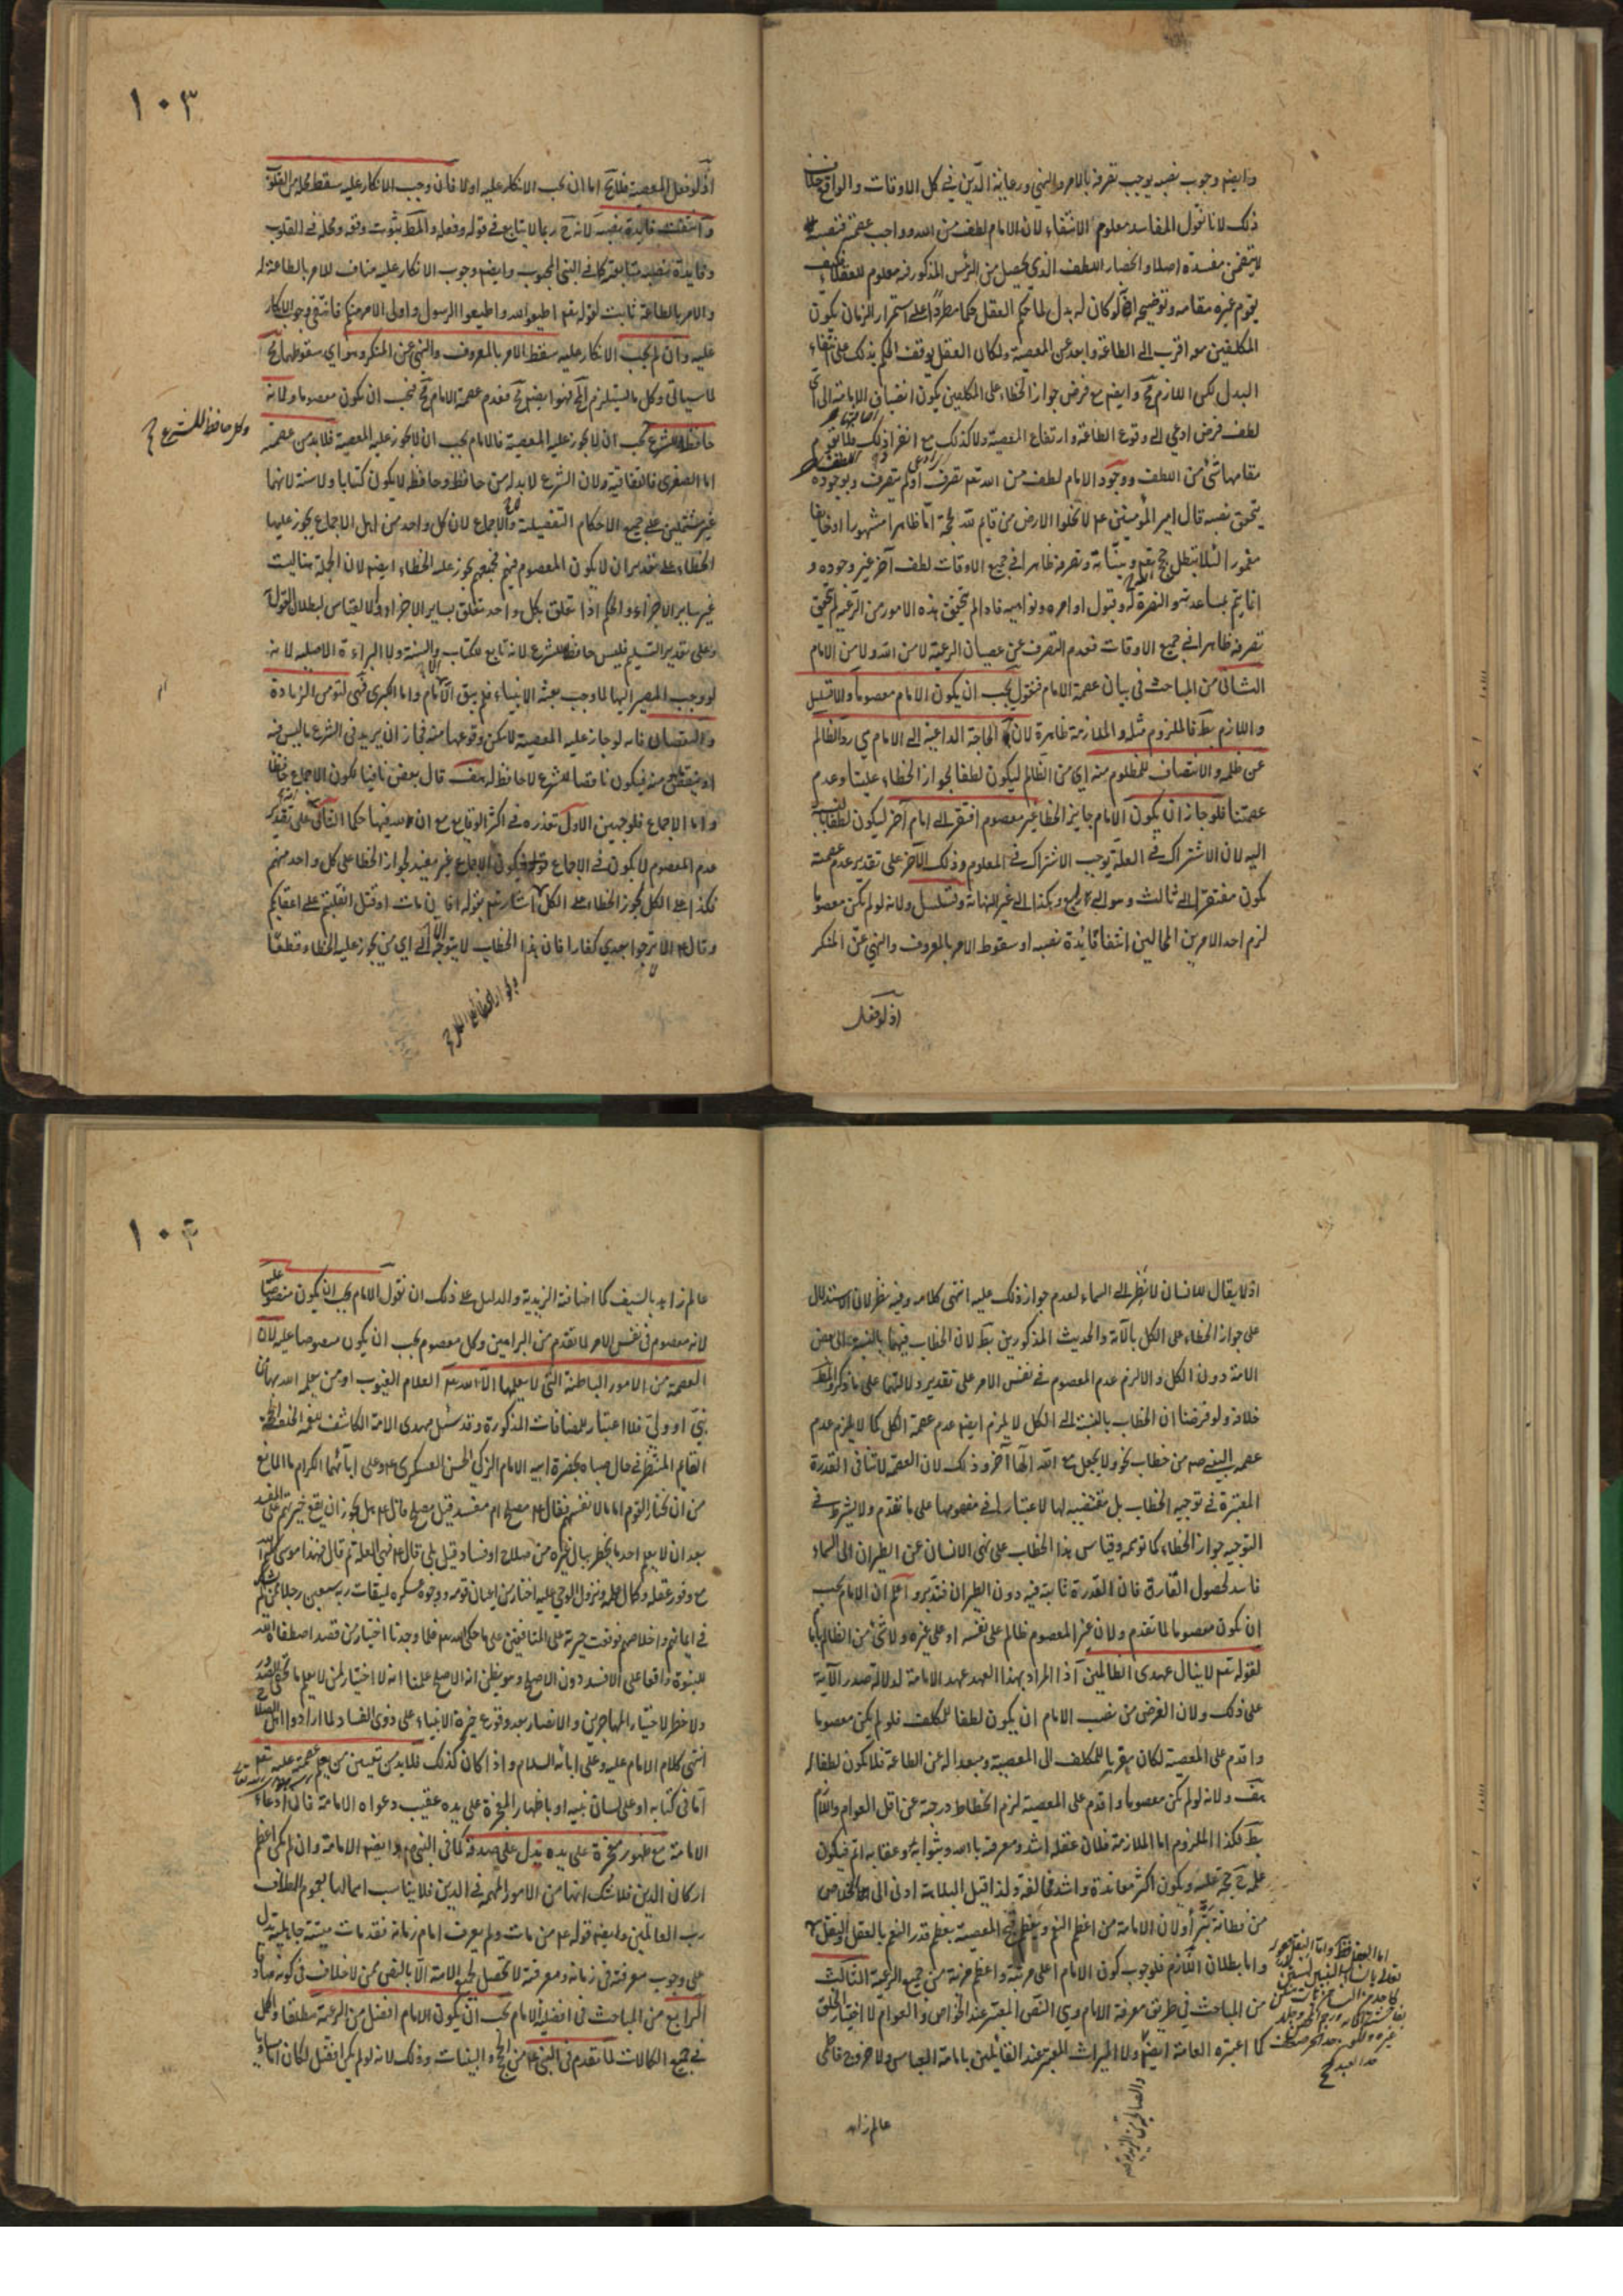 وايضم وجوب نصبه يوجب تصرفه بالامر والنهي ورعاية الدين في كل الاوقات والواقع خلاف
ذلك لانا نقول المفاسد معلوم الانتفاء لان الامام لطف من الله وواجب عصمته فنصبه
لا يتضمن مفسدة اصلا وانحصار اللطف الذي يحصل من الرئيس المذكور فيه معلوم للعقلاء فكيف
يقوم غيره مقامه وتوضيحه انه لو كان له بدل لما حكم العقل حكما مطردا على استمرار الزمان بكون
المكلفين معه اقرب الى الطاعة وابعد عن المعصية ولكان العقل يوقف الحكم بذلك على انتفاء
البدل لكن اللازم مح وايضم مع فرض جواز الخطاء على المكلفين يكون انضياف الامامة الى اي
لطف فرض ادعي الى وقوع الطاعة وارتفاع المعصية ولا كذلك مع انفراد ذلك فلا يقوم
مقامها شئ من اللطف ووجود الامام لطف من الله تعم تصرف او لم يتصرف وبوجوده
يتحقق نفسه قال امير المؤمنين عم لا تخلوا الارض من قايم لله بحجة اما ظاهرا مشهورا او خايفا
مغمورا لئلا تبطل حجج الله وبيناته وتصرفه ظاهرا في جميع الاوقات لطف آخر غير وجوده و
انما يتم بمساعدته والنصرة له وقبول اوامره ونواهيه فاذا لم تتحقق هذه الامور من الرعية لم يتحقق
تصرفه ظاهرا في جميع الاوقات فعدم التصرف عن عصيان الرعية لا من الله ولا من الامام
الثاني من المباحث في بيان عصمة الامام فنقول يجب ان يكون الامام معصوما والا تسلسل
واللازم بط فالملزوم مثله والملازمة ظاهرة لان الحاجة الداعية الى الامام هي رد الظالم
عن ظلمه والانتصاف للمظلوم منه اي من الظالم ليكون لطفا لجواز الخطاء علينا وعدم
عصمتنا فلو جاز ان يكون الامام جايز الخطا غير معصوم افتقر الى امام آخر ليكون لطفا بالنسبة
اليه لان الاشتراك في العلة يوجب الاشتراك في المعلوم وذلك الآخر على تقدير عدم عصمته
يكون مفتقرا الى ثالث وهو الى رابع وهكذا الى غير النهاية وتسلسل ولانه لو لم يكن معصوما
لزم احد الامرين المحالين انتفا فايدة نصبه او سقوط الامر بالمعروف والنهي عن المنكر
اذ لو فعل
١٠٣
اذ لو فعل المعصية فلا يخ اما ان يجب الانكار عليه او لا فان وجب الانكار عليه سقط محله من القلوب
وانتفت فايدة نصبه لانه ح ربما لا يتابع في قوله وفعله والمط بثبوت وقعه ومحله في القلوب
وفايدة نصبه متابعته كما في النبي المحبوب وايضم وجوب الانكار عليه مناف للامر بالطاعة له
والامر بالطاعة ثابت لقوله تعم اطيعوا الله واطيعوا الرسول واولي الامر منكم فانتفى وجوب الانكار
عليه وان لم يجب الانكار عليه سقط الامر بالمعروف والنهي عن المنكر وهو اي سقوطهما مح
لما سياتي وكل ما يستلزم المح فهو ايضم مح فعدم عصمة الامام مح فيجب ان يكون معصوما ولانه
حافظ للشرع يجب ان لا يجوز عليه المعصية فالامام يجب ان لا يجوز عليه المعصية فلا بد من عصمته
وكل حافظ للشرع صح
اما الصغرى فاتفاقية ولان الشرع لا بد له من حافظ وحافظه لا يكون كتابا ولا سنة لانهما
غير مشتملين على جميع الاحكام التفصيلية ولا الاجماع لان كل واحد من اهل الاجماع يجوز عليها
الخطاء على تقدير ان لا يكون المعصوم فيهم فجميعهم يجوز عليه الخطاء ايضم لان الجملة هنا ليست
غير ساير الاجزاء والحكم اذا تعلق بكل واحد تعلق بساير الاجزاء ولا القياس لبطلان القول به
وعلى تقدير التسليم فليس حافظا للشرع لانه تابع للكتاب والسنة ولا البراءة الاصلية لانه
لو وجب المصير اليها لما وجب بعثة الانبياء فلم يبق الا الامام واما الكبرى فهي لتؤمن الزيادة
والنقصان فانه لو جاز عليه المعصية لامكن وقوعها منه فجاز ان يزيد في الشرع ما ليس فيه
او ينقص منه فيكون ناقصا للشرع لا حافظا له هف قال بعض نافيا لكون الاجماع حافظا
واما الاجماع فلوجهين الاول تعذره في اكثر الوقايع مع ان لله فيها حكما الثاني على تقدير
عدم المعصوم لا يكون في الاجماع فيكون الاجماع غير مفيد لجواز الخطا على كل واحد منهم
فكذا على الكل ولجواز الخطاء على الكل اشار تعم بقوله افان مات او قتل انقلبتم على اعقابكم
وقال عم الا لا ترجعوا بعدي كفارا فان هذا الخطاب لا يتوجه الا الى اي من يجوز عليه الخطاء قطعا
اذ لا يقال للانسان لا تطر الى السماء لعدم جواز ذلك عليه انتهى كلامه وفيه نظر لان الاستدلال
على جواز الخطاء على الكل بالآية والحديث المذكورين بط لان الخطاب فيهما بالنسبة الى بعض
الامة دون الكل والا لزم عدم المعصوم في نفس الامر على تقدير دلالتهما على ما ذكر والمط
خلافه ولو فرضنا ان الخطاب بالنسبة الى الكل لا يلزم ايضم عدم عصمة الكل كما لا يلزم عدم
عصمة النبي صم من خطاب نحو ولا تجعل مع الله الها آخر وذلك لان العصمة لا تنافي القدرة
المعتبرة في توجيه الخطاب بل مقتضية لها لاعتبارها في مفهومها على ما تقدم ولا يشرط في
التوجيه جواز الخطاء كما توهمه وقياس هذا الخطاب على نهي الانسان عن الطيران الى السماء
فاسد لحصول الفارق فان القدرة ثابتة فيه دون الطيران فتدبر واعلم ان الامام يجب
ان يكون معصوما لما تقدم ولان غير المعصوم ظالم على نفسه او على غيره ولا شئ من الظالم بامام
لقوله تعم لا ينال عهدي الظالمين اذ المراد بهذا العهد عهد الامامة لدلالة صدر الآية
على ذلك ولان الغرض من نصب الامام ان يكون لطفا للمكلف فلو لم يكن معصوما
واقدم على المعصية لكان مقربا للمكلف الى المعصية ومبعدا له عن الطاعة فلا يكون لطفا له
هف ولانه لو لم يكن معصوما واقدم على المعصية لزم انحطاط درجته عن اقل العوام واللازم
بط فكذا الملزوم اما الملازمة فلان عقله اشد ومعرفته بالله وبثوابه وعقابه اتم فيكون
من فطانة بتراء ولان الامامة من اعظم النعم وعظم قبح المعصية بعظم قدر النعم بالعقل والنقل
واما بطلان اللازم فلوجوب كون الامام اعلى مرتبة واعظم منزلة من جميع الرعية الثالث
من المباحث في طريق معرفة الامام وهي النص المعتبر عند الخواص والعوام لا اختيار الخلق
كما اعتبره العامة ايضم ولا الميراث المعتبر عند القايلين بامامة العباس ولا خروج فاطمي
عالم زاهد
١٠٤
عالم زاهد بالسيف كما اضافته الزيدية والدليل على ذلك ان نقول الامام يجب ان يكون منصوصا عليه
لانه معصوم في نفس الامر لما تقدم من البراهين وكل معصوم يجب ان يكون منصوصا عليه لان
العصمة من الامور الباطنة التي لا يعلمها الا الله تعم العلام الغيوب او من يعلمه الله بها من
نبي او ولي فلا اعتبار للمضافات المذكورة وقد سئل مهدي الامة الكاشف للغمة الخلف الحجة
القايم المنتظر في حال صباه بحضرة ابيه الامام الزكي الحسن العسكري عم وعلى آبائهما الكرام ما المانع
من ان يختار القوم اماما لانفسهم فقال عم مصلح ام مفسد قيل مصلح قال عم هل يجوز ان يقع خيرتهم على المفسد
بعد ان لا يعلم احد ما يخطر ببال غيره من صلاح او فساد وقيل بلى قال عم فهي العلة ثم قال فهذا موسى كليم الله
مع وفور عقله وكمال علمه ونزول الوحي عليه اختار من اعيان قومه ووجوه عسكره لميقات ربه سبعين رجلا ممن لم يشك
في ايمانهم واخلاصهم فوقعت خيرته على المنافقين على ما حكى الله تعم فلما وجدنا اختيار من قصد اصطفاه الله
للنبوة واقعا على الافسد دون الاصلح وهو يظن انه الاصلح علمنا انه لا اختيار لمن لا يعلم ما تخفي الصدور
ولا خطر لاختيار المهاجرين والانصار بعد وقوع خيرة الانبياء على ذوي الفساد لما ارادوا اهل الصلاح
انتهى كلام الامام عليه وعلى آبائه السلام واذا كان كذلك فلا بد من تعيين من يعلم عصمته عليه تعم
اما في كتابه او على لسان نبيه او باظهار المعجزة على يده عقيب دعواه الامامة فان ادعاء
الامامة مع ظهور معجزة على يده يدل على صدقه كما في النبي عم وايضم الامامة وان لم يكن اعظم
اركان الدين فلا شك انها من الامور المهمة في الدين فلا يناسب اهمالها بعموم الطاف
رب العالمين وايضم قوله عم من مات ولم يعرف امام زمانه فقد مات ميتة جاهلية يدل
على وجوب معرفته في زمانه ومعرفته لا تحصل لجميع الامة الا بالنص ممن لا خلاف في كونه صادقا
الرابع من المباحث في افضلية الامام يجب ان يكون الامام افضل من الرعية مطلقا والكل
في جميع الكمالات لما تقدم في النبي عم من الحجج والبينات وذلك لانه لو لم يكن افضل لكان اما مساويا